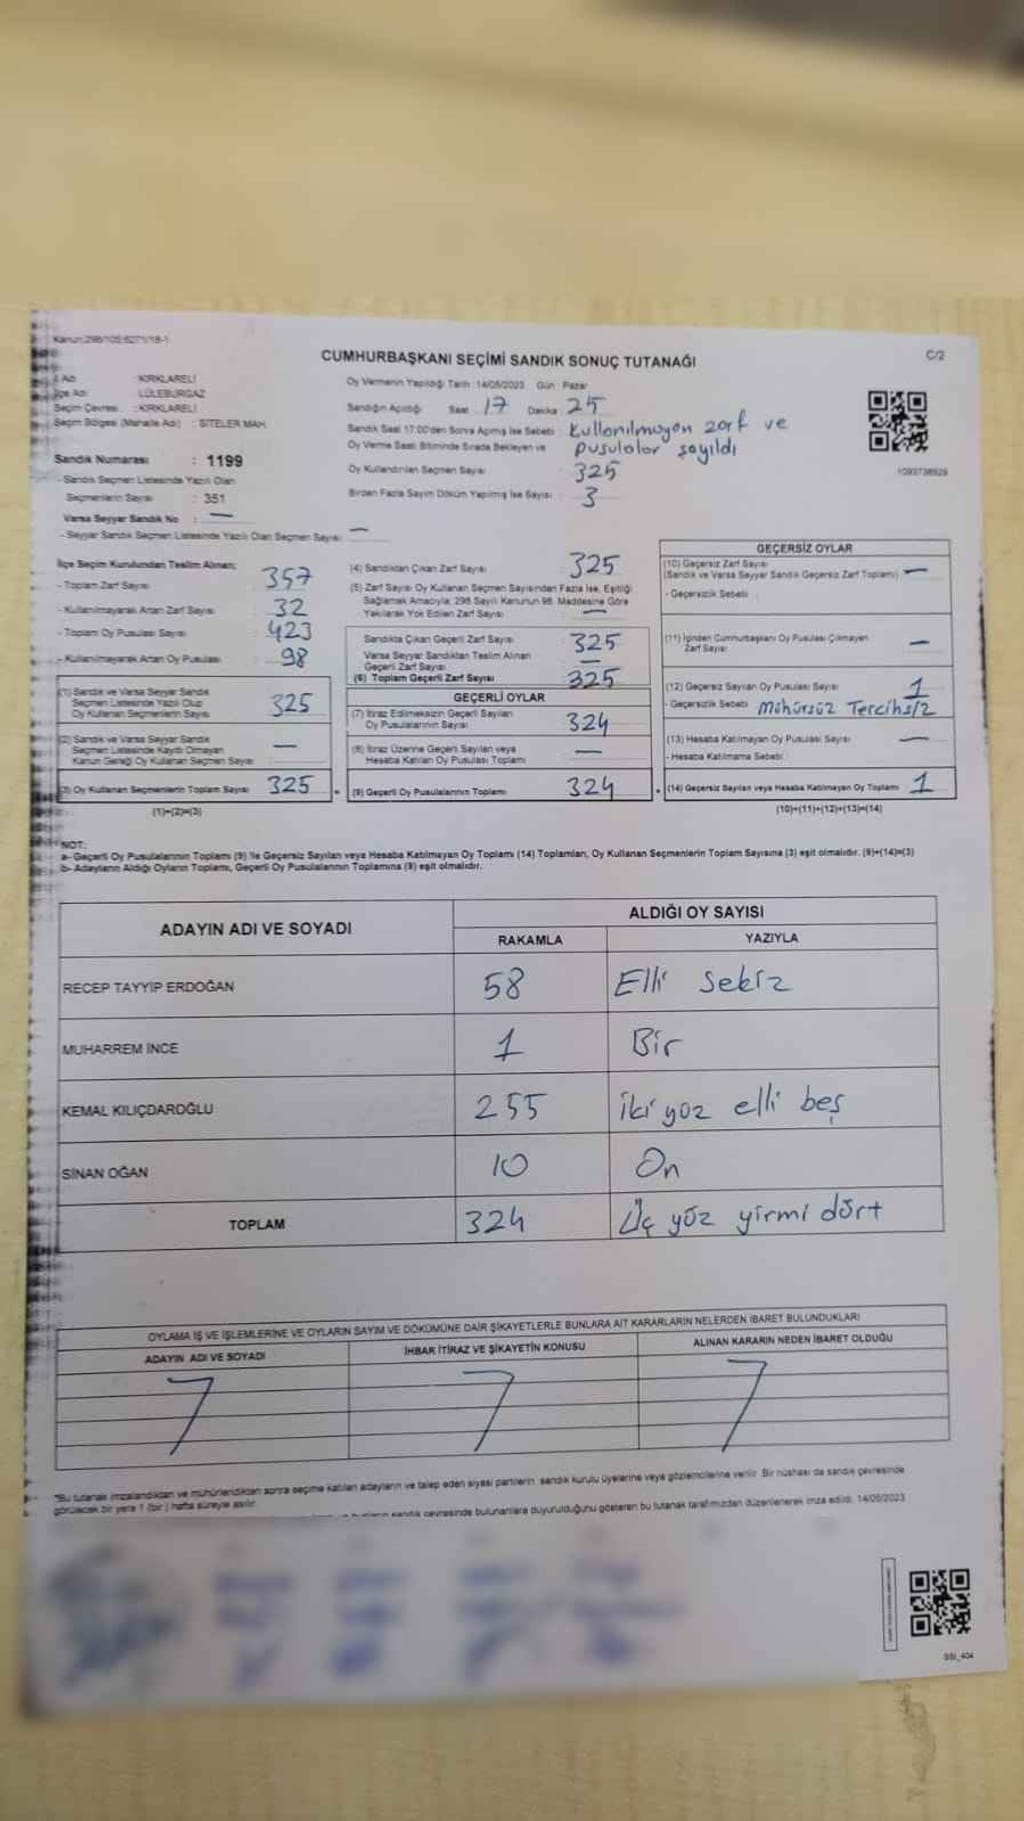 Kanun:298/105;6271/18-1
CUMHURBAŞKANI SEÇİMİ SANDIK SONUÇ TUTANAĞI
C/2
İl Adı : KIRKLARELİ
İlçe Adı : LÜLEBURGAZ
Seçim Çevresi : KIRKLARELİ
Seçim Bölgesi (Mahalle Adı) : SİTELER MAH.
Sandık Numarası : 1199
- Sandık Seçmen Listesinde Yazılı Olan
Seçmenlerin Sayısı : 351
Varsa Seyyar Sandık No : —
- Seyyar Sandık Seçmen Listesinde Yazılı Olan Seçmen Sayısı: —
Oy Vermenin Yapıldığı Tarih : 14/05/2023 Gün : Pazar
Sandığın Açıldığı Saat 17 Dakika 25
Sandık Saat 17:00'den Sonra Açılmış İse Sebebi : Kullanılmayan zarf ve
pusulalar sayıldı
Oy Verme Saati Bitiminde Sırada Bekleyen ve
Oy Kullandırılan Seçmen Sayısı : 325
Birden Fazla Sayım Döküm Yapılmış İse Sayısı : 3
1093738929
İlçe Seçim Kurulundan Teslim Alınan;
- Toplam Zarf Sayısı : 357
- Kullanılmayarak Artan Zarf Sayısı : 32
- Toplam Oy Pusulası Sayısı : 423
- Kullanılmayarak Artan Oy Pusulası : 98
(1) Sandık ve Varsa Seyyar Sandık
Seçmen Listesinde Yazılı Olup
Oy Kullanan Seçmenlerin Sayısı : 325
(2) Sandık ve Varsa Seyyar Sandık
Seçmen Listesinde Kayıtlı Olmayan
Kanun Gereği Oy Kullanan Seçmen Sayısı : —
(3) Oy Kullanan Seçmenlerin Toplam Sayısı : 325
(1)+(2)=(3)
(4) Sandıktan Çıkan Zarf Sayısı : 325
(5) Zarf Sayısı Oy Kullanan Seçmen Sayısından Fazla İse, Eşitliği
Sağlamak Amacıyla; 298 Sayılı Kanunun 98. Maddesine Göre
Yakılarak Yok Edilen Zarf Sayısı : —
Sandıkta Çıkan Geçerli Zarf Sayısı : 325
Varsa Seyyar Sandıktan Teslim Alınan
Geçerli Zarf Sayısı : —
(6) Toplam Geçerli Zarf Sayısı : 325
GEÇERLİ OYLAR
(7) İtiraz Edilmeksizin Geçerli Sayılan
Oy Pusulalarının Sayısı : 324
(8) İtiraz Üzerine Geçerli Sayılan veya
Hesaba Katılan Oy Pusulası Toplamı : —
(9) Geçerli Oy Pusulalarının Toplamı : 324
GEÇERSİZ OYLAR
(10) Geçersiz Zarf Sayısı
(Sandık ve Varsa Seyyar Sandık Geçersiz Zarf Toplamı) : —
- Geçersizlik Sebebi :
(11) İçinden Cumhurbaşkanı Oy Pusulası Çıkmayan
Zarf Sayısı : —
(12) Geçersiz Sayılan Oy Pusulası Sayısı : 1
- Geçersizlik Sebebi : Mühürsüz Tercihsiz
(13) Hesaba Katılmayan Oy Pusulası Sayısı : —
- Hesaba Katılmama Sebebi :
(14) Geçersiz Sayılan veya Hesaba Katılmayan Oy Toplamı : 1
(10)+(11)+(12)+(13)=(14)
NOT:
a- Geçerli Oy Pusulalarının Toplamı (9) ile Geçersiz Sayılan veya Hesaba Katılmayan Oy Toplamı (14) Toplamları, Oy Kullanan Seçmenlerin Toplam Sayısına (3) eşit olmalıdır. (9)+(14)=(3)
b- Adayların Aldığı Oyların Toplamı, Geçerli Oy Pusulalarının Toplamına (9) eşit olmalıdır.
ADAYIN ADI VE SOYADI
ALDIĞI OY SAYISI
RAKAMLA YAZIYLA
RECEP TAYYİP ERDOĞAN 58 Elli sekiz
MUHARREM İNCE 1 Bir
KEMAL KILIÇDAROĞLU 255 iki yüz elli beş
SİNAN OĞAN 10 On
TOPLAM 324 Üç yüz yirmi dört
OYLAMA İŞ VE İŞLEMLERİNE VE OYLARIN SAYIM VE DÖKÜMÜNE DAİR ŞİKAYETLERLE BUNLARA AİT KARARLARIN NELERDEN İBARET BULUNDUKLARI
ADAYIN ADI VE SOYADI İHBAR İTİRAZ VE ŞİKAYETİN KONUSU ALINAN KARARIN NEDEN İBARET OLDUĞU
"Bu tutanak imzalandıktan ve mühürlendikten sonra seçime katılan adayların ve talep eden siyasi partilerin sandık kurulu üyelerine veya gözlemcilerine verilir. Bir nüshası da sandık çevresinde
görülecek bir yere 1 (bir) hafta süreyle asılır.
sandık çevresinde bulunanlara duyurulduğunu gösteren bu tutanak tarafımızdan düzenlenerek imza edildi. 14/05/2023
SSI_404